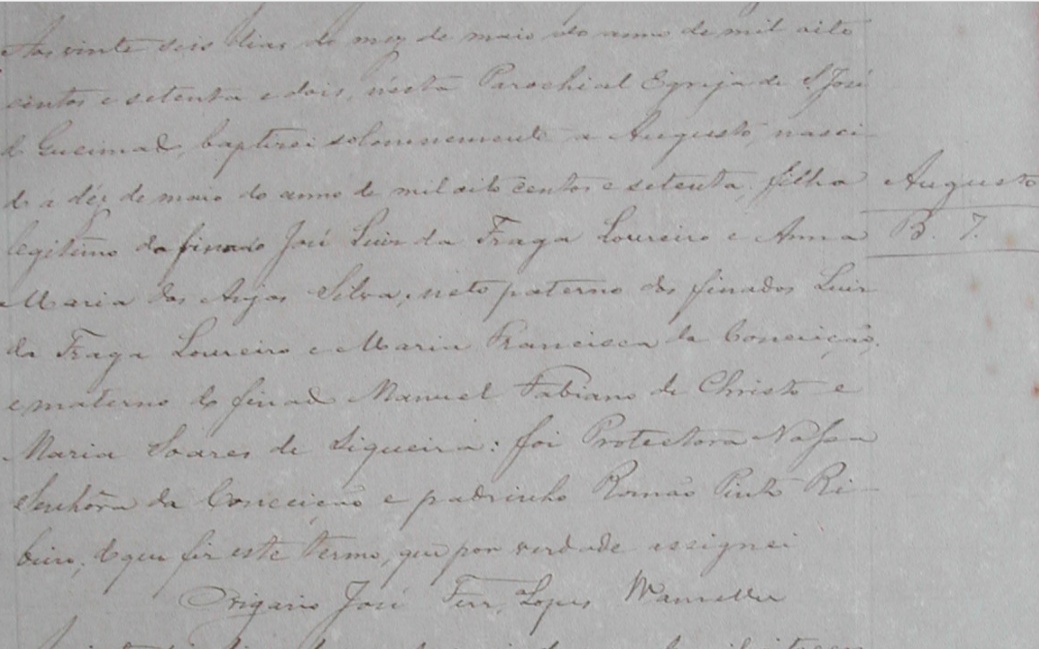 Aos vinte seis dias do mez de maio do anno de mil oito
centos e setenta e dois, nésta Parochial Egreja de S. José
baptizei solemnemente a Augusto, nasci-
do a déz de maio do anno de mil oito centos e setenta, filho
Augusto
B. 7.
legitimo do finado José Luis da Fraga Loureiro e Anna
Maria dos Anjos Silva, neto paterno dos finados Luis
da Fraga Loureiro e Maria Francisca da Conceição,
e materno do finado Manuel Fabiano de Christo e
Maria Soares de Siqueira: foi Protectora Nossa
Senhora da Conceição e padrinho Romão Pinto Ri-
beiro, do que fiz este termo, que por verdade assignei
Vigario José Ferr.a Lopes